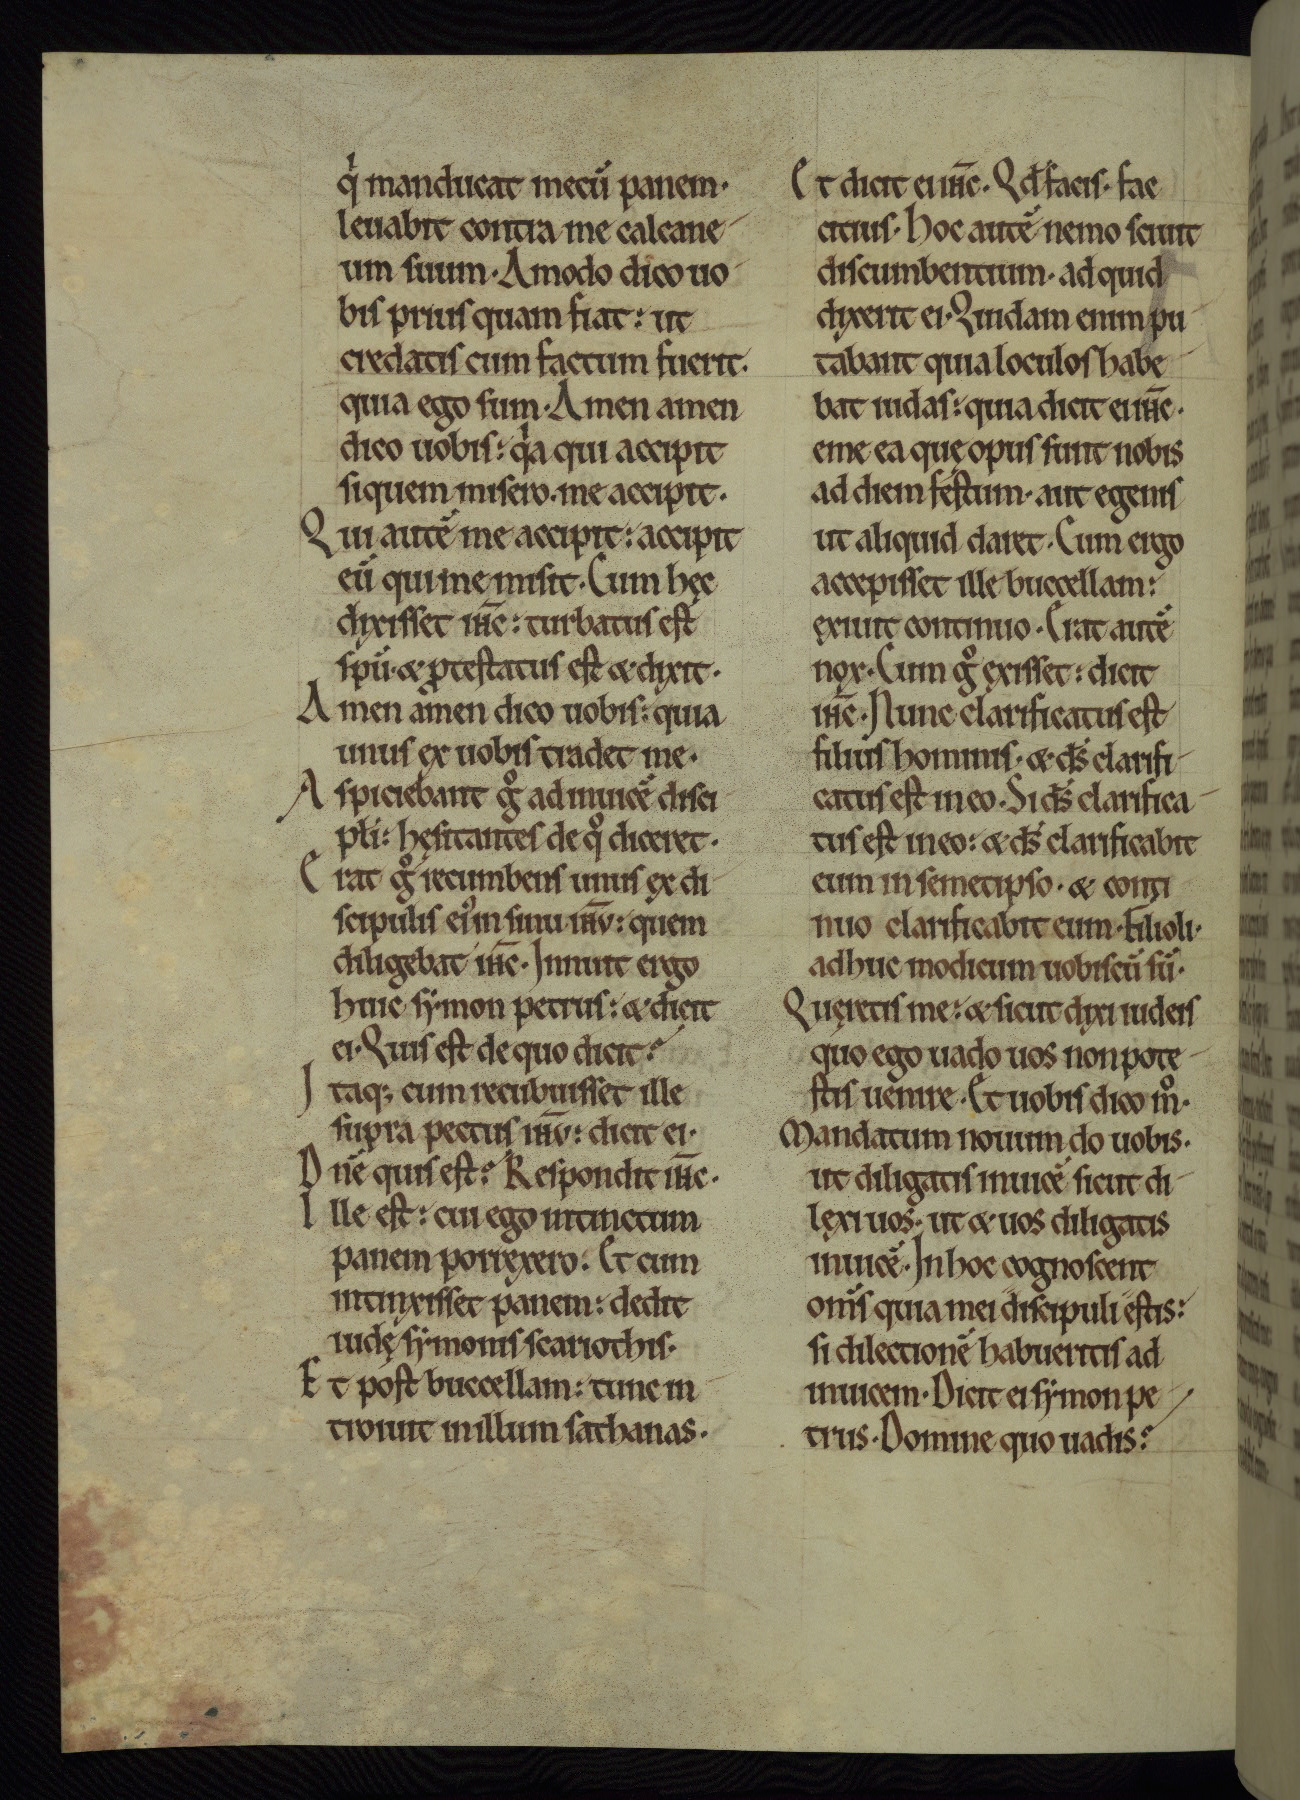 qͥ manducat mecū panem·
leuabit contra me calcane
um suum· Amodo dico uo
bis prius quam fiat: ut
credatis cum factum fuerit·
quia ego sum· Amen amen
dico uobis: qͥa qui accipit
siquem misero· me accipit·
Qui autē me accipit: accipit
eū qui me misit· Cum hęc
dixisset ihc̄: turbatus est
spū· & ꝓtestatus est & dixit·
Amen amen dico uobis: quia
unus ex uobis tradet me·
Aspiciebant gͦ ad inuicē disci
pli: hęsitantes de qͦ diceret·
Erat gͦ recumbens unus ex di
scipulis eiꝰ in sinu ihū: quem
diligebat ihc̄· Innuit ergo
huic sẏmon petrus: & dicit
ei· Quis est de quo dicit?
Itaq; cum recubuisset ille
supra pectus ihū: dicit ei·
Dnē quis est? Respondit ihc̄·
Ille est: cui ego intinctum
panem porrexero: Et cum
intinxisset panem: dedit
iudę sẏmonis scariothis·
Et post buccellam: tunc in
troiuit in illum sathanas·
Et dicit ei ihc̄· Qd̄ facis· fac
citius· Hoc autē nemo sciuit
discumbentium· ad quid
dixerit ei· Quidam enim pu
tabant quia loculos habe
bat iudas: quia dicit ei ihc̄·
eme ea quę opus sunt nobis
ad diem festum· aut egenis
ut aliquid daret· Cum ergo
accepisset ille buccellam:
exiuit continuo· Erat autē
nox· Cum gͦ exisset: dicit
ihc̄· Nunc clarificatus est
filius hominis· & ds̄ clarifi
catus est in eo· Si ds̄ clarifica
tus est in eo: & ds̄ clarificabit
eum in semetipso· & conti
nuo clarificabit eum· Filioli·
adhuc modicum uobiscū sū·
Quęretis me: & sicut dixi iudeis
quo ego uado uos non pote
stis uenire· Et uobis dico mͦ·
Mandatum nouum do uobis·
ut diligatis inuicē sicut di
lexi uos· ut & uos diligatis
inuicē· In hoc cognoscent
om̄s quia mei discipuli estis:
si dilectionē habueritis ad
inuicem· Dicit ei sẏmon pe
trus· Domine quo uadis?